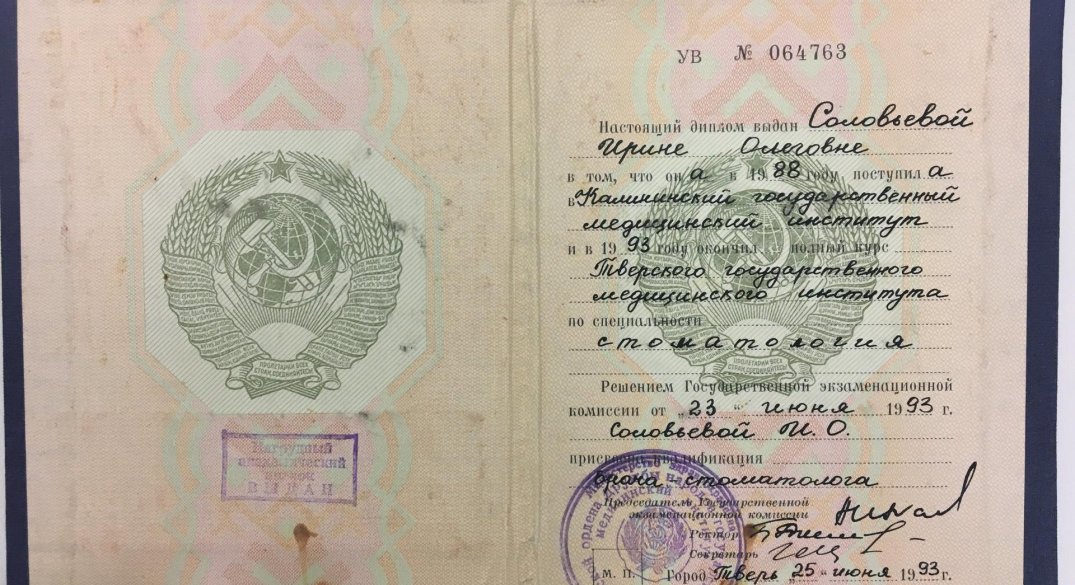 ПРОЛЕТАРИИ ВСЕХ
СТРАН, СОЕДИНЯЙТЕСЬ!
Нагрудный
академический
значок
ВЫДАН
УВ № 064763
Настоящий диплом выдан Соловьевой
Ирине Олеговне
в том, что он а в 19 88 году поступил а
в Калининский государственный
медицинский институт
и в 19 93 году окончил полный курс
Тверского государственного
медицинского института
по специальности
стоматология
Решением Государственной экзаменационной
комиссии от „ 23 “ июня 19 93 г.
Соловьевой И. О.
присвоена квалификация
врача стоматолога
Председатель Государственной
экзаменационной комиссии
Ректор
Секретарь
М. П. Город Тверь „ 25 “ июня 19 93 г.